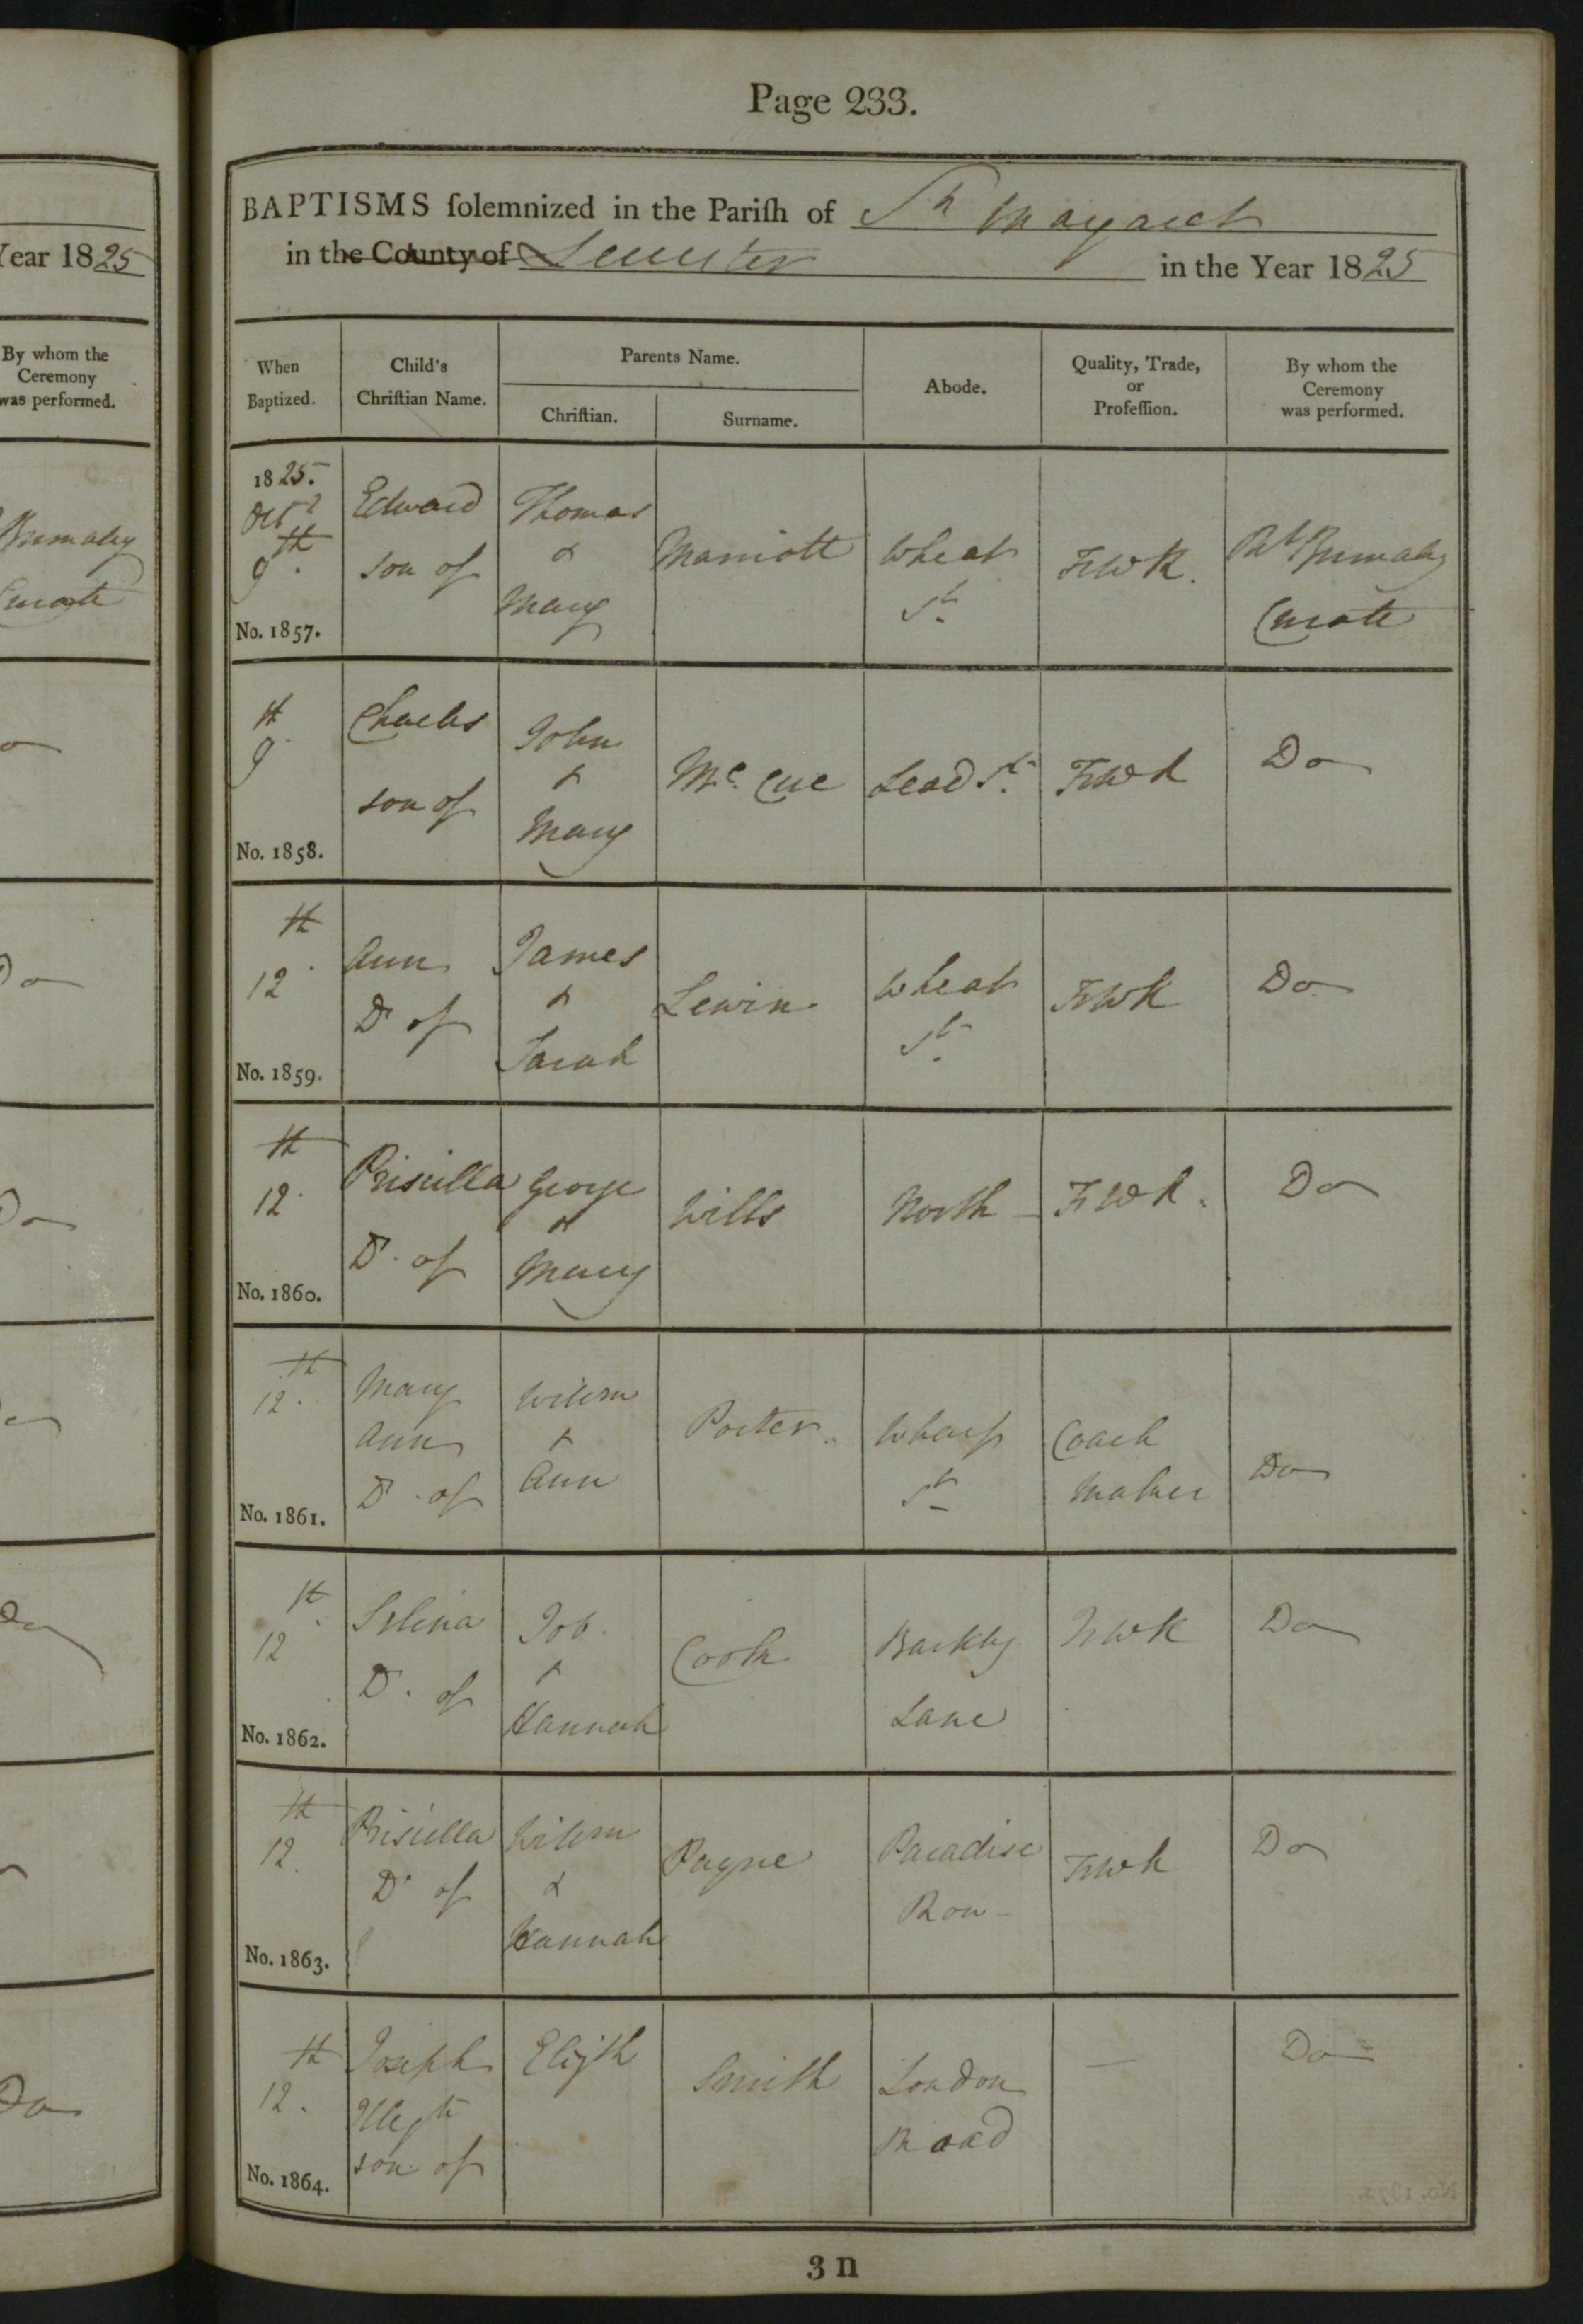 Year 1825
By whom the
Ceremony
was performed.
Burnaby
Curate
Do
Do
Do
Do
Do
Do
Page 233.
BAPTISMS ſolemnized in the Pariſh of St Margaret
in the County of Leicester in the Year 1825
When
Baptized.
Child's
Chriſtian Name.
Parents Name.
Chriſtian.
Surname.
Abode.
Quality, Trade,
or
Profeſſion.
By whom the
Ceremony
was performed.
1825.
Octr
9th.
No. 1857.
Edward
son of
Thomas
&
Mary
Marriott
Wheat
St.
FWK.
Rt Burnaby
Curate
9th
No. 1858.
Charles
son of
John
&
Mary
Mc. Cue
Lead St.
FWK
Do
12th
No. 1859.
Ann
D of
James
&
Sarah
Lewin
Wheat
St.
FWK
Do
12th
No. 1860.
Priscilla
D. of
George
&
Mary
Wills
North
FWK.
Do
12th.
No. 1861.
Mary
Ann
D. of
Willm
&
Ann
Porter.
Wharf
St
Coach
Maker
Do
12th
No. 1862.
Selina
D. of
Job.
&
Hannah
Cook
Barkby
Lane
FWK
Do
12th.
No. 1863.
Priscilla
D. of
Willm
&
Hannah
Payne
Paradise
Row
FWK
Do
12th.
No. 1864.
Joseph
Illegte
son of
Elizth
Smith
London
Road
—
Do
3 n